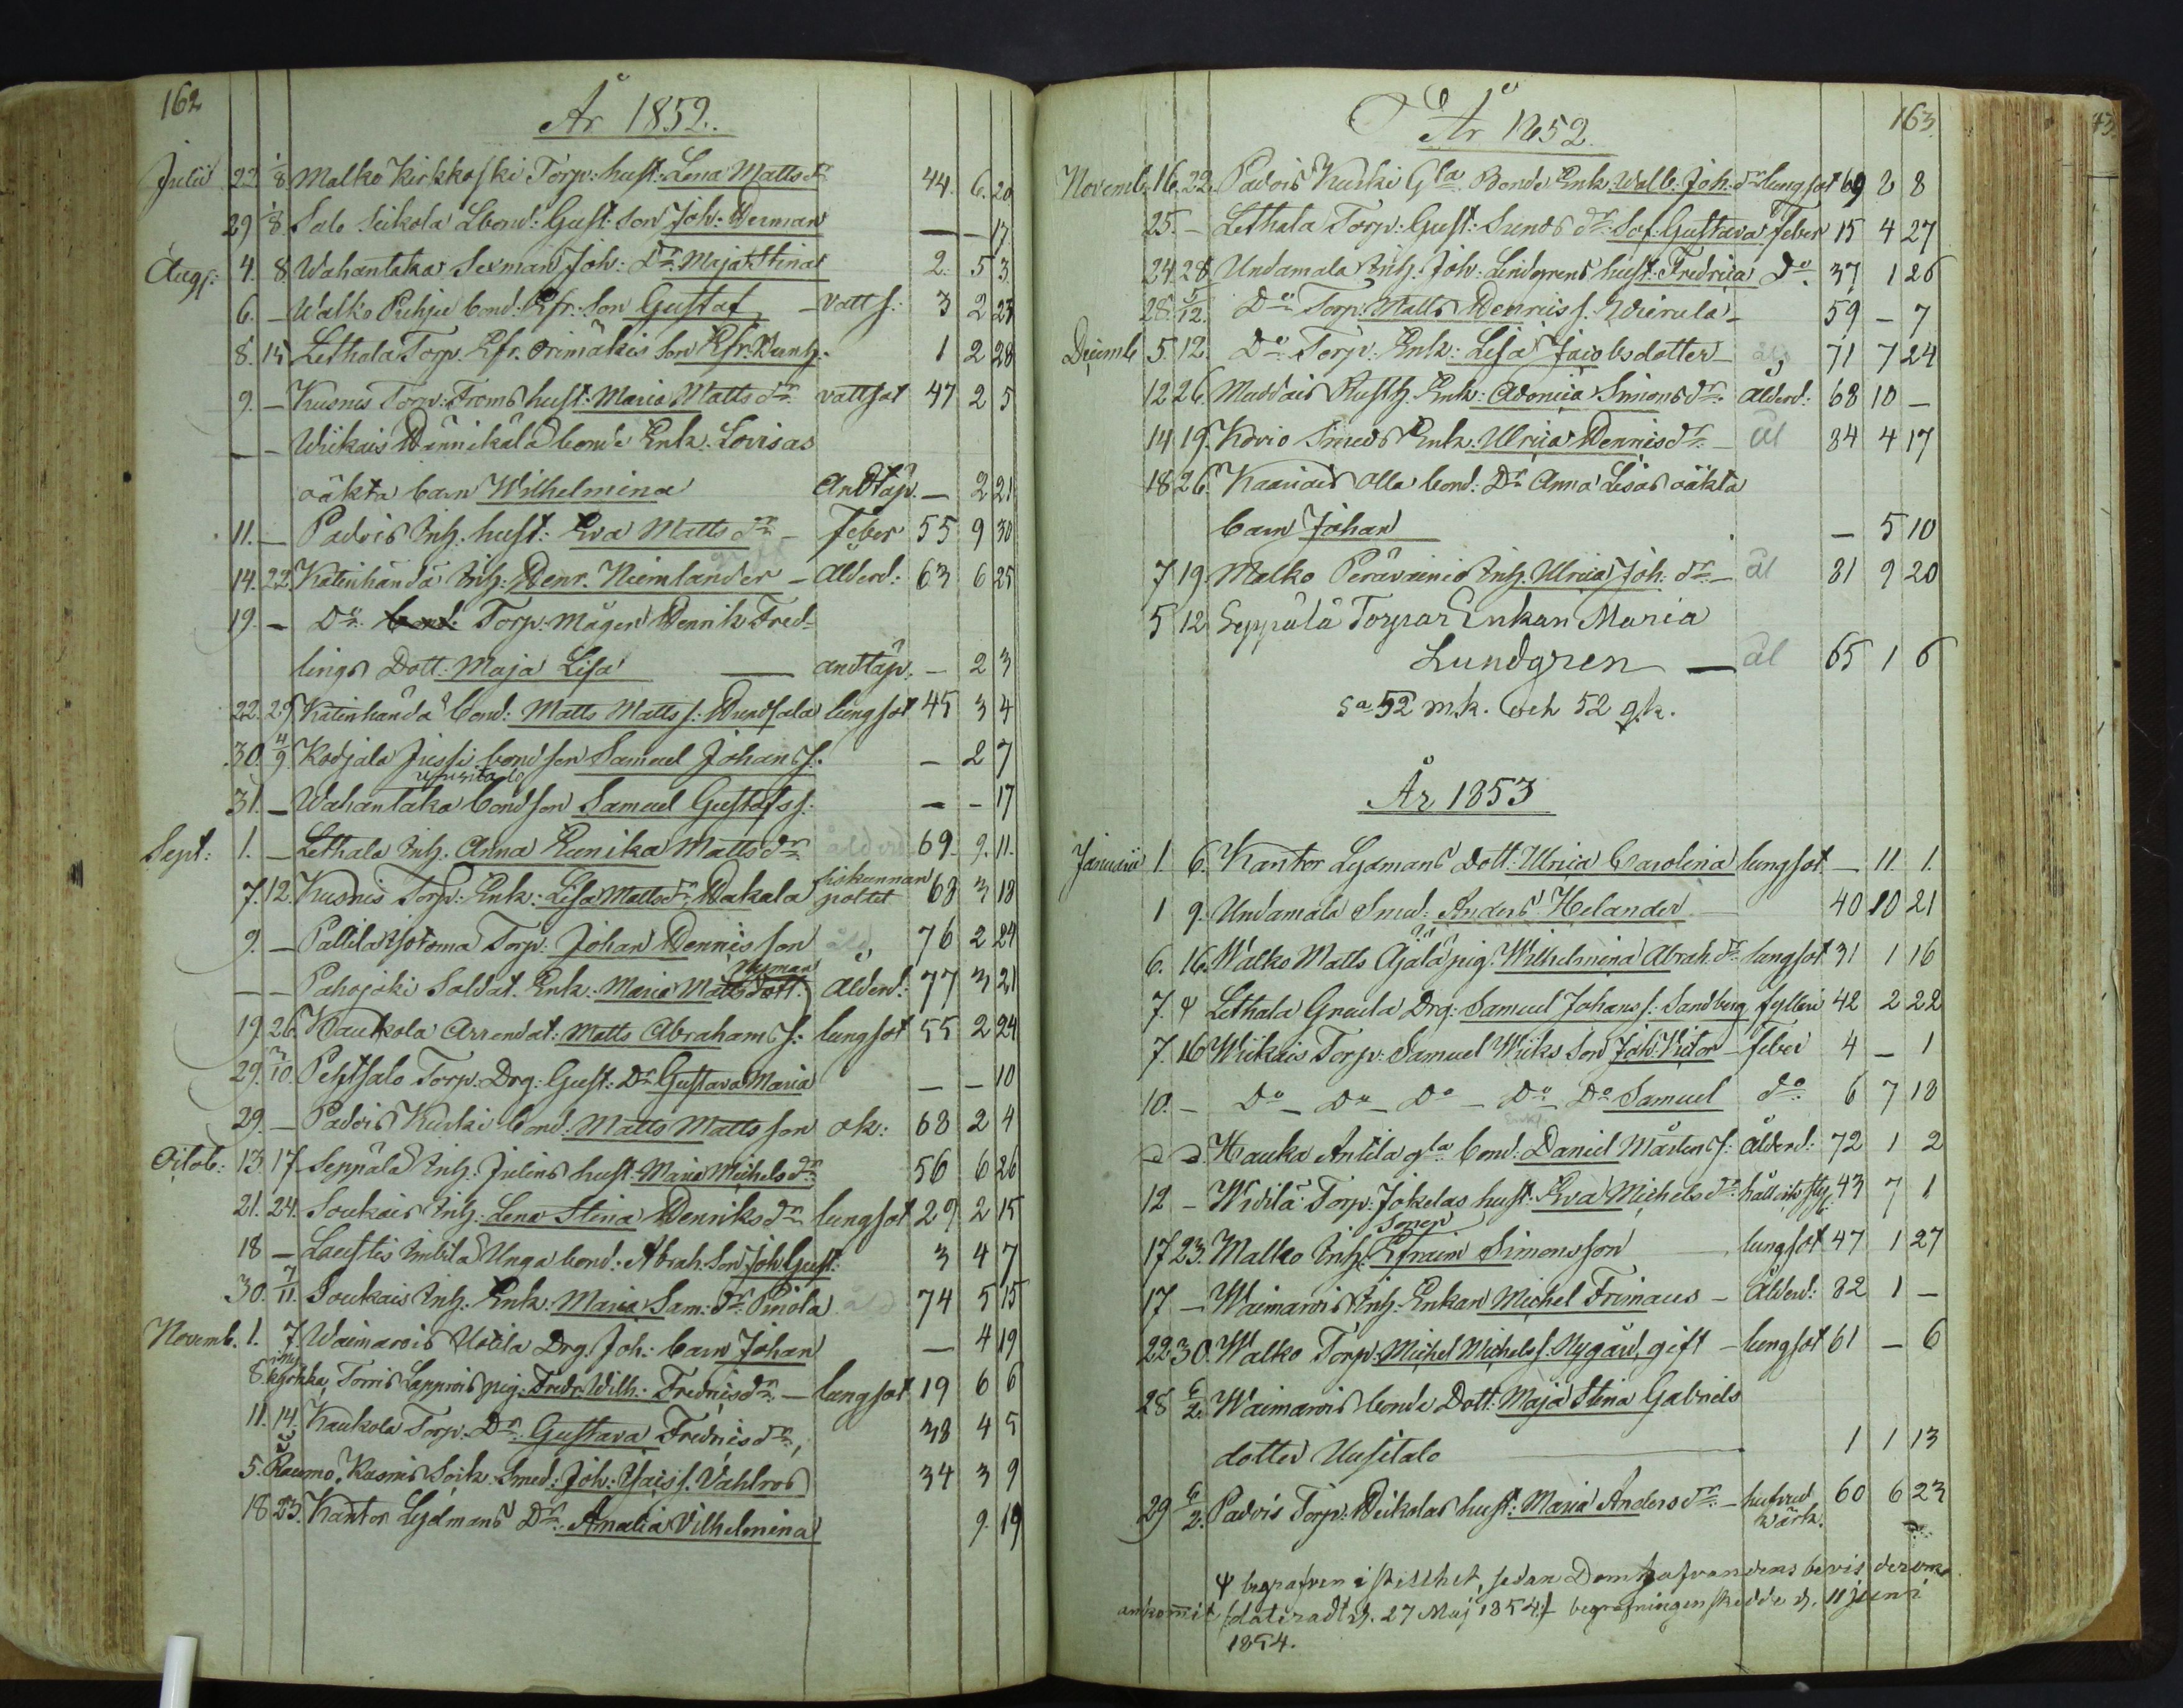 162
År 1852.
Julii 22 1/8 Malko Kirkkoski Torp: hust: Lena Matts dr 44. 6. 20
29 1/8 Salo Seikola Lbond: Gust: Son Joh: Herman — — 17.
Aug: 4. 8 Wahantaka Sexman Joh: Dr Maja Stina 2. 5 3
6. — Walko bond: Efr: Son Gustaf — vatt s: 3 2 27
8. 15 Lethala Torp. Efr. Orimäkis Son Efr: 1 2 28
9. — Kusnis Torp: Froms hust: Maria Matts dr vattsot 47 2 5
— — Wiikais Hännikälä bonde Enk: Lovisas
oäkta barn Wilhelmina Andtäp. — 2 21
11. — Padvis Inh. hust: Eva Matts dr — Feber 55 9 30
14. 22. Katinhändä Inh: Henr. Niemlander — Ålderd: 63 6 25
19. — Do Torp. Mågen Henrik Fred-
lings Dott: Maja Lisa — andtäp. — 2 3
22. 29. Katinhändä bond: Matts Matts s: lungsot 45 3 4
30. 4/9 Kodjala Jussi bondson Samuel Johans s. — 2 7
31. — Wahantaka bondson Samuel Gustafs s: — — 17
Sept: 1. — Lethala Inh. Anna Eunika Matts dr ålderd 69 9. 11.
7. 12. Kusnis Torp: Enk: Lisa Matts dr Hakala 68 3 18
9. — Pallila Isotoma Torp. Johan Hennisson åld, 76 2 24
Nyman
— — Pahojoki Soldat. Enk: Maria Matts dott: Ålderd: 77 3 21
19. 26. Kaukola Arrendat: Matts Abrahams s: lungsot 55 2 24
29. 3/10. Pehtsalo Torp: Drg: Gust: Dr Gustava Maria — — 10
29. — Padvis Kurki bond: Matts Mattsson ok: 68 2 4
Octob: 13. 17. Seppälä Inh: Julins hust: Maria Michels dr 56 6 26
21. 24. Soukais Inh: Lena Stina Henriks dr lungsot 29 2 15
18 — Laustis Imbila Unga bond: Abrah: Son Joh Gust: 3 4 7
30. 7/11. Soukais Inh: Enk: Maria Sam: dr Pinola åld 74 5 15
Novemb. 1. 7. Waimarois Uotila Drg. Joh: barn Johan — 4 19
8. kyrkka, Torris Lapprois pig: Fredr: Wilh: Fredrics dr — lungsot 19 6 6
11. 14. Kaukola Torp: Dr Gustava Fredrics dr, 38 4 5
5. Raumo, Kusnis Smed: Joh: Isaics s. Vahlros 34 3 9
18 23. Kantor Lydmans Dr Amalia Vilhelmina 9. 19
163.
År 1852.
Novemb. 16. 22. Padvis Kurki Gla Bonde Enk: Walb: Joh: dr lungsot 69 2 8
25. — Lethala Torp: Gust: Sunds dr: Sof: Gustava feber 15 4 27
24 28 Undamala Inh: Joh: Lindgrens hust: Fredrica Do 37 1 26
28. 5/12. Do Torp: Matts Henrics s. Wierula — 59 — 7
Decemb 5. 12. Do Torp: Enk: Lisa Jacobsdotter — åld, 71 7 24
12 26. Maddais Rusth. Enk: Adonica Simons dr Ålderd: 68 10 —
14 19. Korvo Smeds Enk: Ulrica Henrics dr — ål 84 4 17
18 26. Kaariais Olla bond: Dr Anna Lisas oäkta
barn Johan — 5 10
7 19. Malko Peravainio Inh. Ulrica Joh: dr — ål 81 9 20
5 12. Seppälä Torpar Enkan Maria
Lundgren — ål 65 1 6
Sa 52 m.k. och 52 q.k.
År 1853
Januarii 1. 6. Kantor Lydmans Dott: Ulrica Carolina lungsot — 11. 1.
1 9. Undamala Smed: Anders Helander 40 10 21
6. 16. Walko Matts Ajala pig. Wilhelmina Abrah. dr lungsot 31 1 16
7. Ψ Lethala Greula Drg: Samuel Johans s: Sandberg fylleri 42 2 22
7. 16 Wiikais Torp: Samuel Wiiks Son Joh: Victor — feber 4 — 1
10. — Do — Do — Do — Do Do Samuel do 6 7 18
Hauka Antila gla bond: Daniel Mårtens s: Ålderd: 72 1 2
12 — Widilä Torp: Jokelas hust: Eva Michels dr håll och styg: 43 7 1
Sonen
17 23. Malko Inh: Efraim Simonsson — lungsot 47 1 27
17 — Waimarois Inh: Enkan Michel Frimaus — Ålderd: 82 1 —
22 30. Walko Torp: Michel Michels s. Nygård, gift — lungsot 61 — 6
28 6/2. Waimarois bonde Dott: Maja Stina Gabriels
dotter Uusitalo 1 1 13
29 6/2. Padvis Torp: Heikolas hust: Maria Anders dr — hufvud 60 6 23
wärk.
Ψ begrafven i stillhet, sedan Domhafvandens bevis derom
ankommit (: dateradt d. 27 Maj 1854:) begrafningen skedde d. 11 juni
1854.